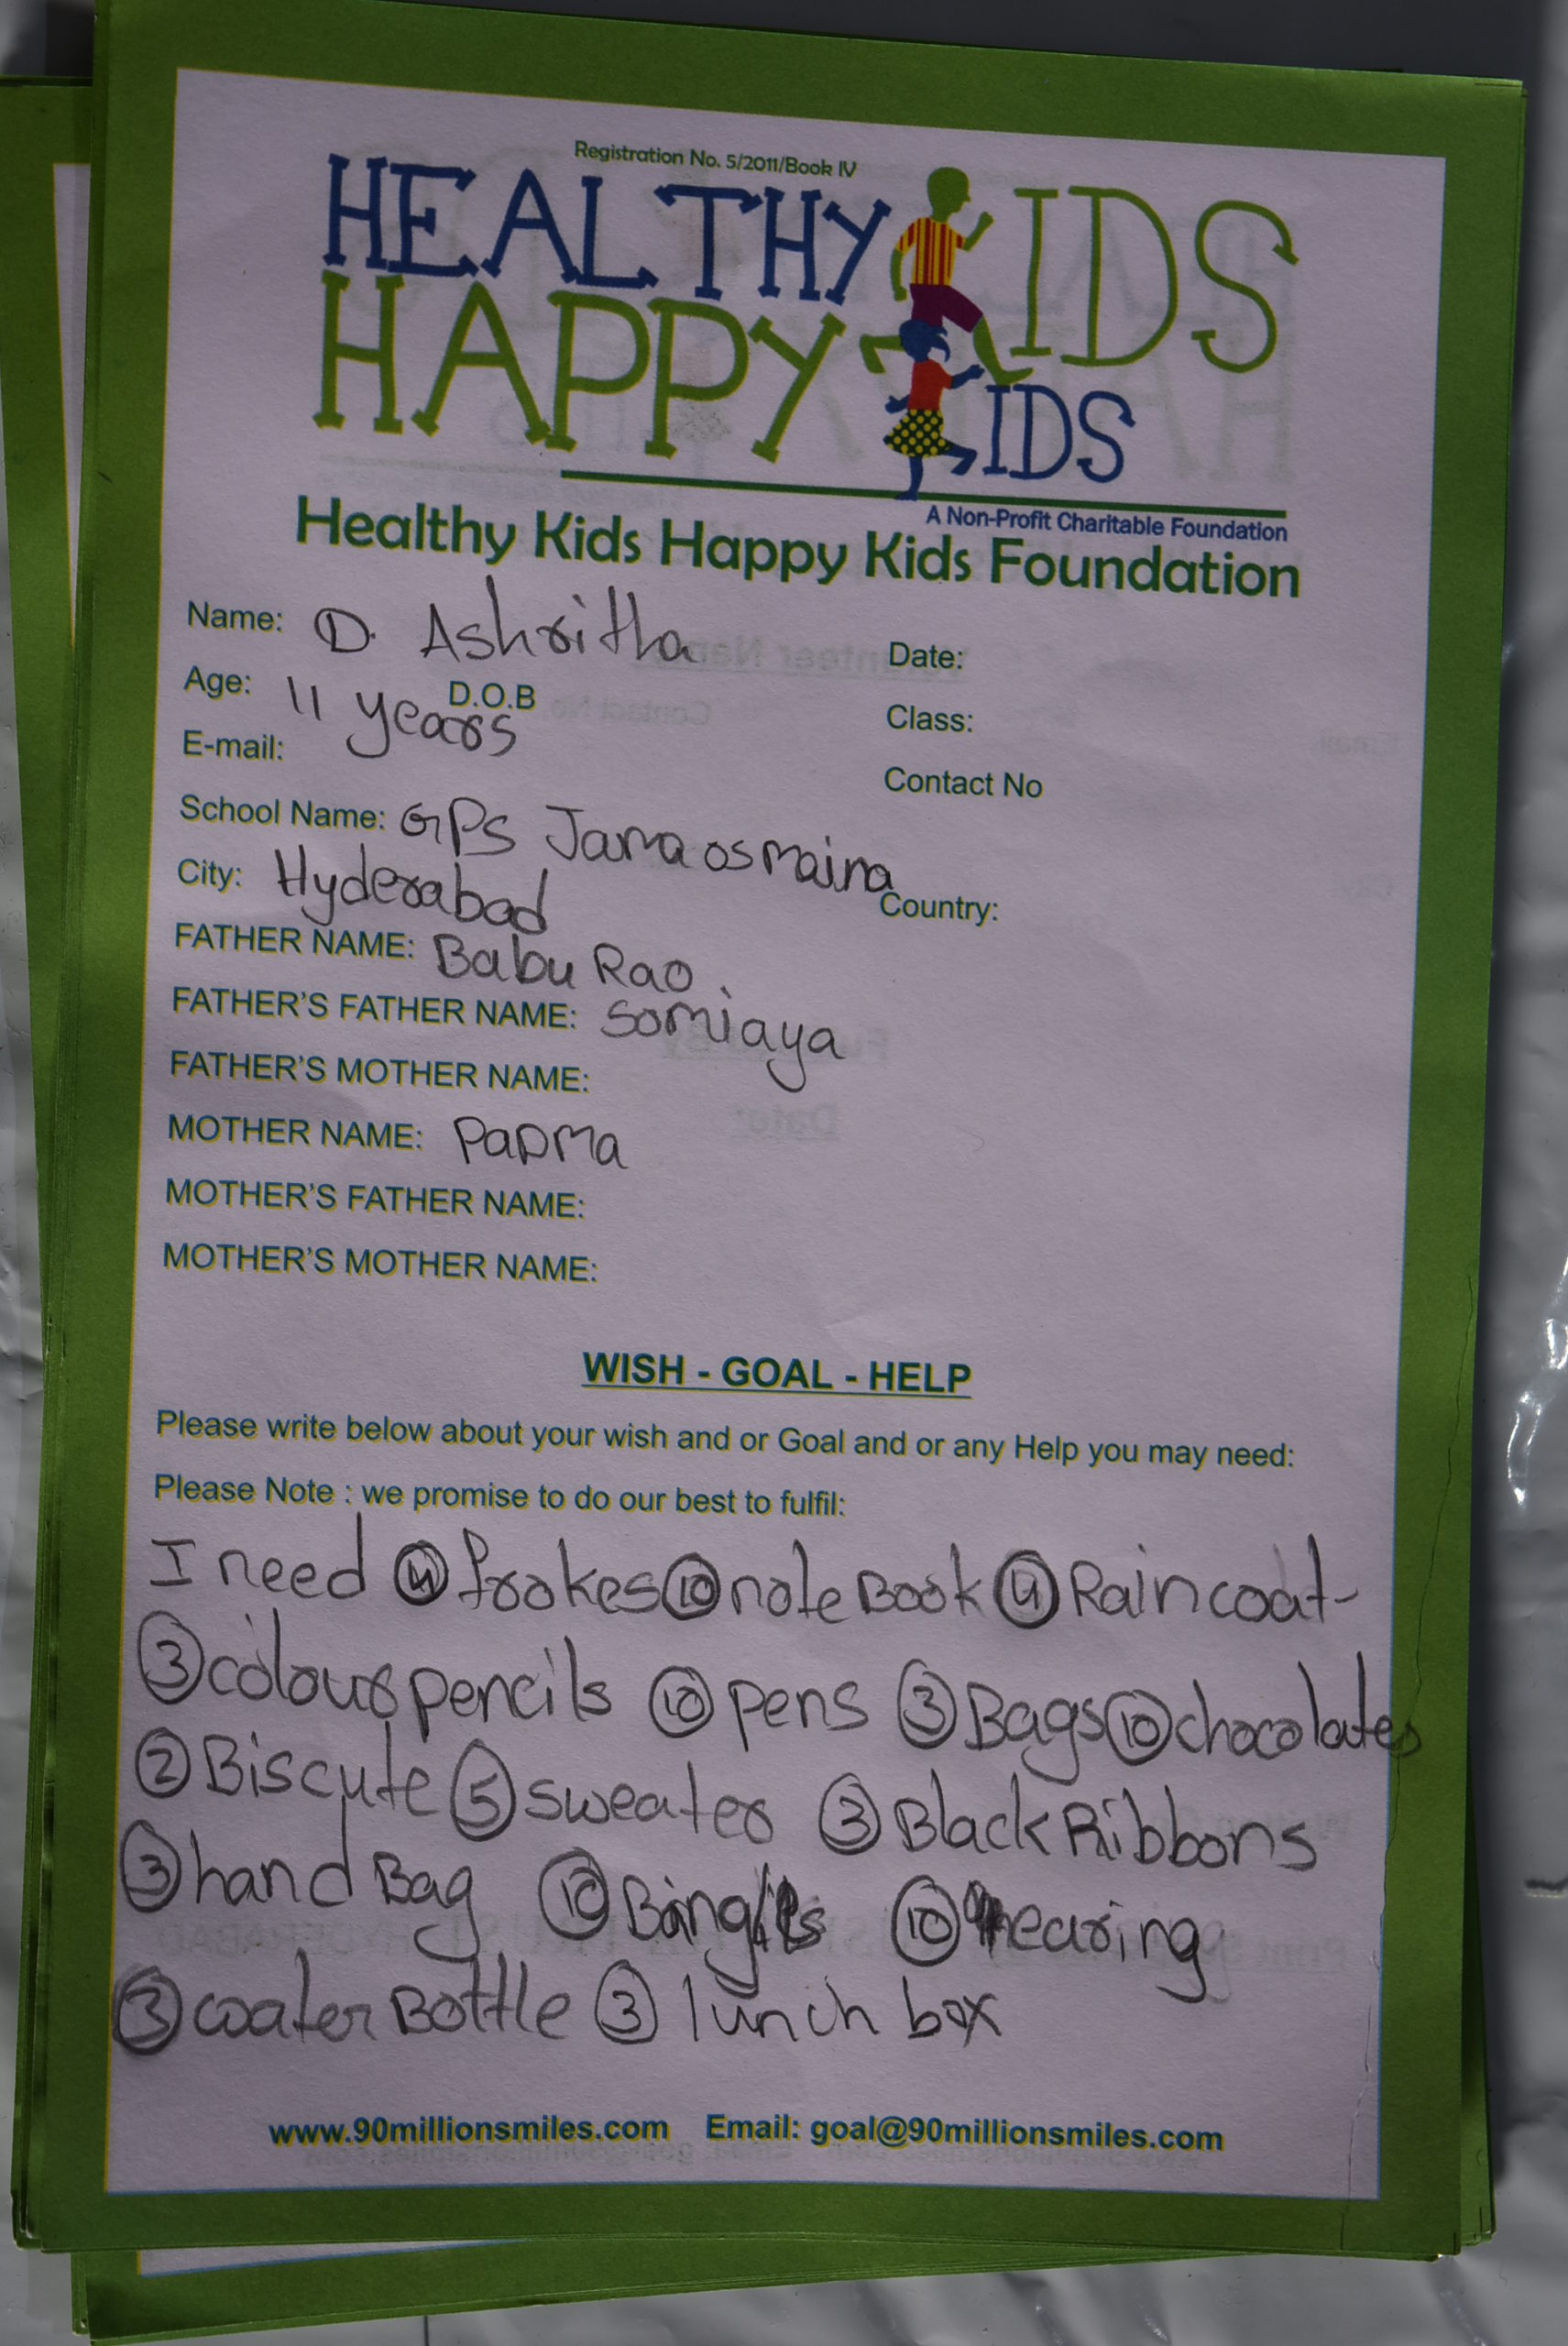 Registration No. 5/2011/Book IV
HEALTHY KIDS
HAPPY KIDS
A Non-Profit Charitable Foundation
Healthy Kids Happy Kids Foundation
Name: D. Ashritha
Date:
Age: 11 years D.O.B
Class:
E-mail:
Contact No
School Name: GPS Jama osmaina
City: Hyderabad
Country:
FATHER NAME: Babu Rao.
FATHER'S FATHER NAME: Somiaya
FATHER'S MOTHER NAME:
MOTHER NAME: PaDMa
MOTHER'S FATHER NAME:
MOTHER'S MOTHER NAME:
WISH - GOAL - HELP
Please write below about your wish and or Goal and or any Help you may need:
Please Note : we promise to do our best to fulfil:
I need 4 frokes 10 note Book 4 Rain coat
3 colour pencils 10 pens 3 Bags 10 chocolates
2 Biscute 5 sweater 3 Black Ribbons
3 hand Bag 10 10 earing
3 water Bottle 3 lunch box
www.90millionsmiles.com Email: goal@90millionsmiles.com